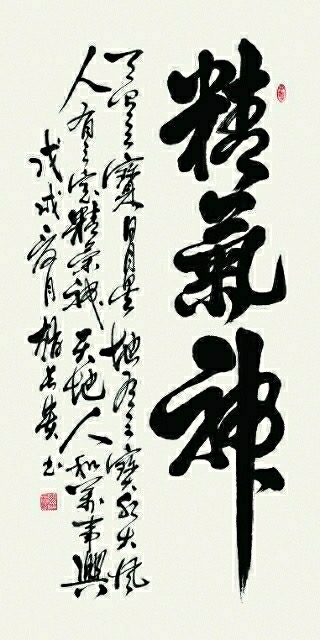 精氣神
天有三寶日月星地有三寶水火風
人有三寶精氣神天地人和萬事興
戊戌夏月楊书